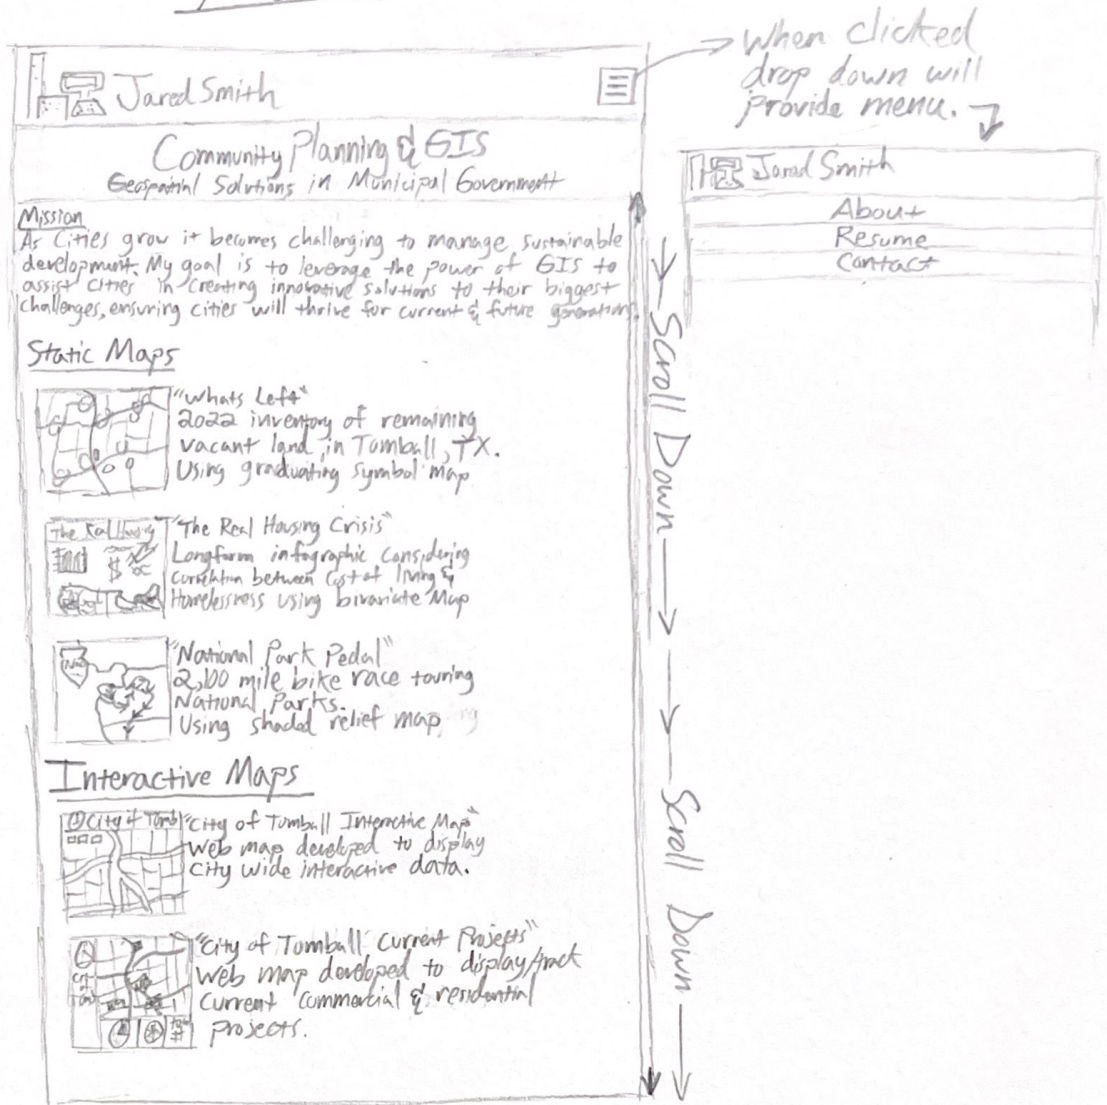 Jared Smith
When clicked
drop down will
provide menu.
Community Planning & GIS
Geospatial Solutions in Municipal Government
Jared Smith
About
Resume
Contact
Mission
As Cities grow it becomes challenging to manage sustainable
development. My goal is to leverage the power of GIS to
assist cities in creating innovative solutions to their biggest
challenges, ensuring cities will thrive for current & future generations.
Scroll Down
Static Maps
"Whats Left"
2022 inventory of remaining
vacant land in Tomball, TX.
Using graduating symbol map
The Real Housing
"The Real Housing Crisis"
Longform infographic considering
correlation between cost of living &
Homelessness using bivariate Map
"National Park Pedal"
2,100 mile bike race touring
National Parks.
Using shaded relief map,
Interactive Maps
City of Tomb
"City of Tomball Interactive Map"
Web map developed to display
City wide interactive data.
Scroll Down
"City of Tomball Current Projects"
Web map developed to display/tract
current commercial & residential
projects.